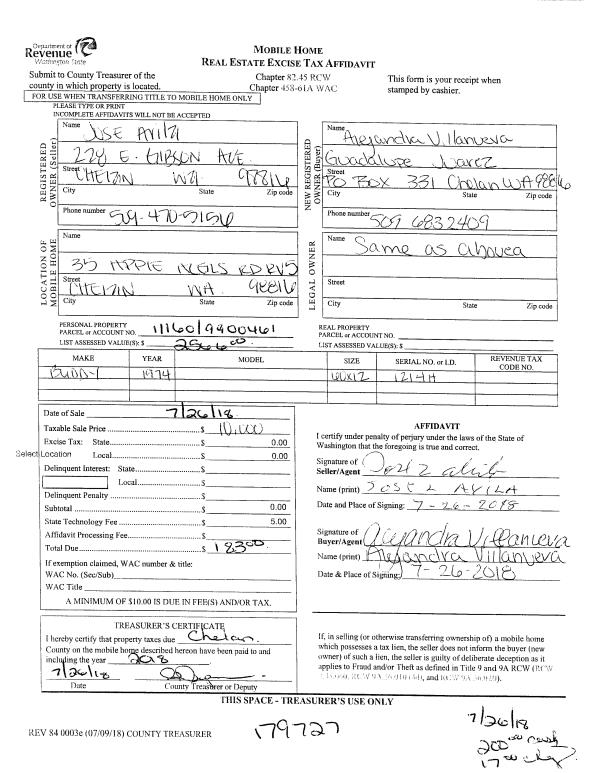 Department of
Revenue
Washington State
MOBILE HOME
REAL ESTATE EXCISE TAX AFFIDAVIT
Submit to County Treasurer of the
county in which property is located.
Chapter 82.45 RCW
Chapter 458-61A WAC
This form is your receipt when
stamped by cashier.
FOR USE WHEN TRANSFERRING TITLE TO MOBILE HOME ONLY
PLEASE TYPE OR PRINT
INCOMPLETE AFFIDAVITS WILL NOT BE ACCEPTED
REGISTERED
OWNER (Seller)
Name JOSE AVILA
228 E. GIBSON AVE.
Street CHELAN WA 98816
City State Zip code
Phone number 509-470-5156
NEW REGISTERED
OWNER (Buyer)
Name Alejandra Villanueva
Guadalupe Juarez
Street PO BOX 331 Chelan WA 98816
City State Zip code
Phone number 509 6832409
LOCATION OF
MOBILE HOME
Name
35 APPLE RD
Street CHELAN WA 98816
City State Zip code
LEGAL OWNER
Name Same as above
Street
City State Zip code
PERSONAL PROPERTY
PARCEL or ACCOUNT NO. 11160/9900461
LIST ASSESSED VALUE(S): $ 2566.00
REAL PROPERTY
PARCEL or ACCOUNT NO.
LIST ASSESSED VALUE(S): $
MAKE YEAR MODEL SIZE SERIAL NO. or I.D. REVENUE TAX CODE NO.
BUDDY 1974 60X12 1214H
Date of Sale 7/26/18
Taxable Sale Price $ 10,000
Excise Tax: State $ 0.00
Select Location Local $ 0.00
Delinquent Interest: State $
Local $
Delinquent Penalty $
Subtotal $ 0.00
State Technology Fee $ 5.00
Affidavit Processing Fee $
Total Due $ 183.00
If exemption claimed, WAC number & title:
WAC No. (Sec/Sub)
WAC Title
A MINIMUM OF $10.00 IS DUE IN FEE(S) AND/OR TAX.
AFFIDAVIT
I certify under penalty of perjury under the laws of the State of
Washington that the foregoing is true and correct.
Signature of
Seller/Agent
Name (print) JOSE AVILA
Date and Place of Signing: 7-26-2018
Signature of
Buyer/Agent Alejandra Villanueva
Name (print) Alejandra Villanueva
Date & Place of Signing: 7-26-2018
TREASURER'S CERTIFICATE
I hereby certify that property taxes due Chelan
County on the mobile home described hereon have been paid to and
including the year 2018
7/26/18
Date County Treasurer or Deputy
If, in selling (or otherwise transferring ownership of) a mobile home
which possesses a tax lien, the seller does not inform the buyer (new
owner) of such a lien, the seller is guilty of deliberate deception as it
applies to Fraud and/or Theft as defined in Title 9 and 9A RCW (RCW
THIS SPACE - TREASURER'S USE ONLY
REV 84 0003e (07/09/18) COUNTY TREASURER
179727
7/26/18
200.00 cash
17.00